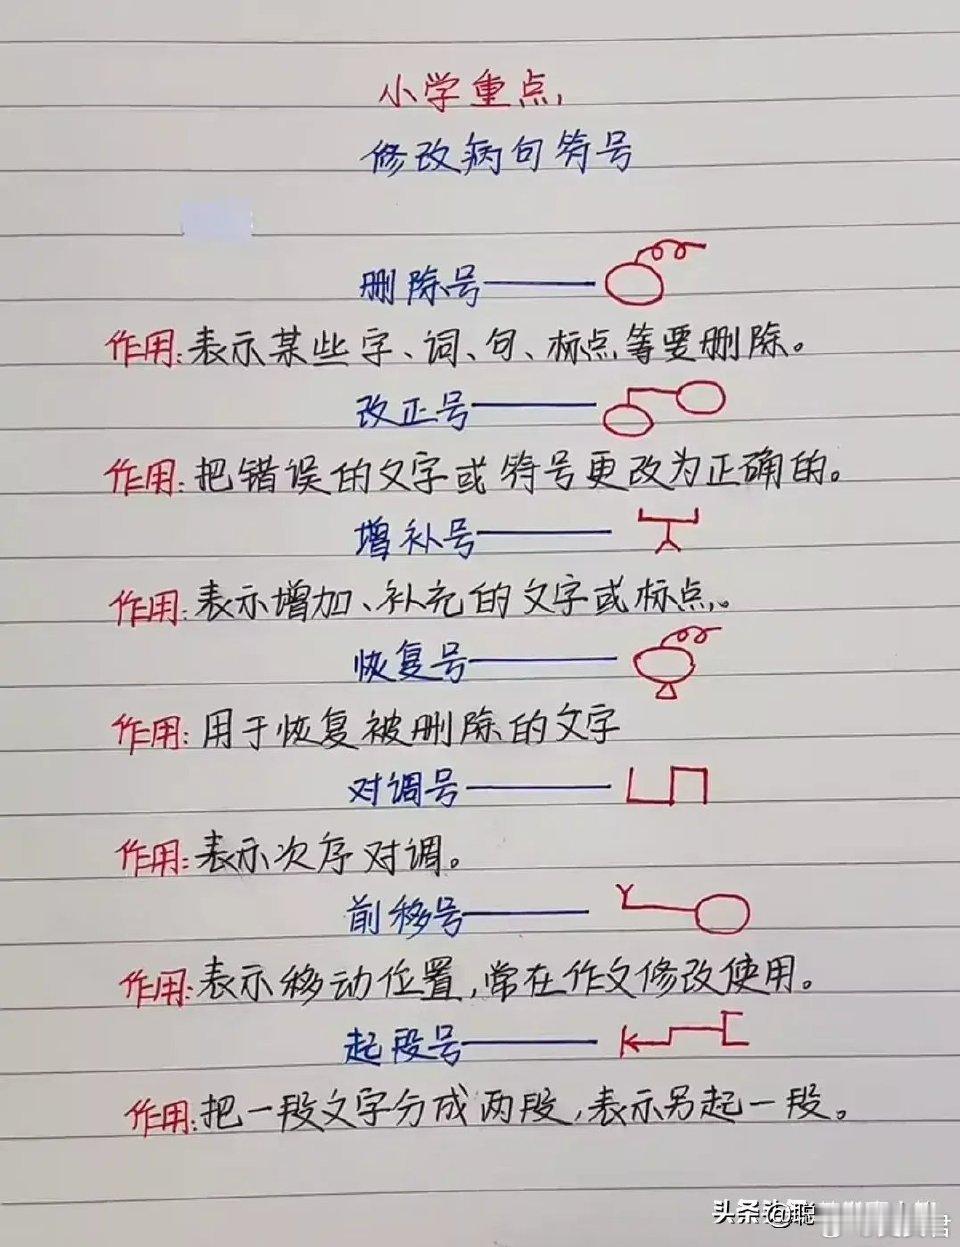 小学重点,
修改病句符号
删除号
作用:表示某些字、词、句、标点等要删除。
改正号
作用:把错误的文字或符号更改为正确的。
增补号
作用:表示增加、补充的文字或标点。
恢复号
作用:用于恢复被删除的文字
对调号
作用:表示次序对调。
前移号
作用:表示移动位置,常在作文修改使用。
起段号
作用:把一段文字分成两段,表示另起一段。
头条 @聪